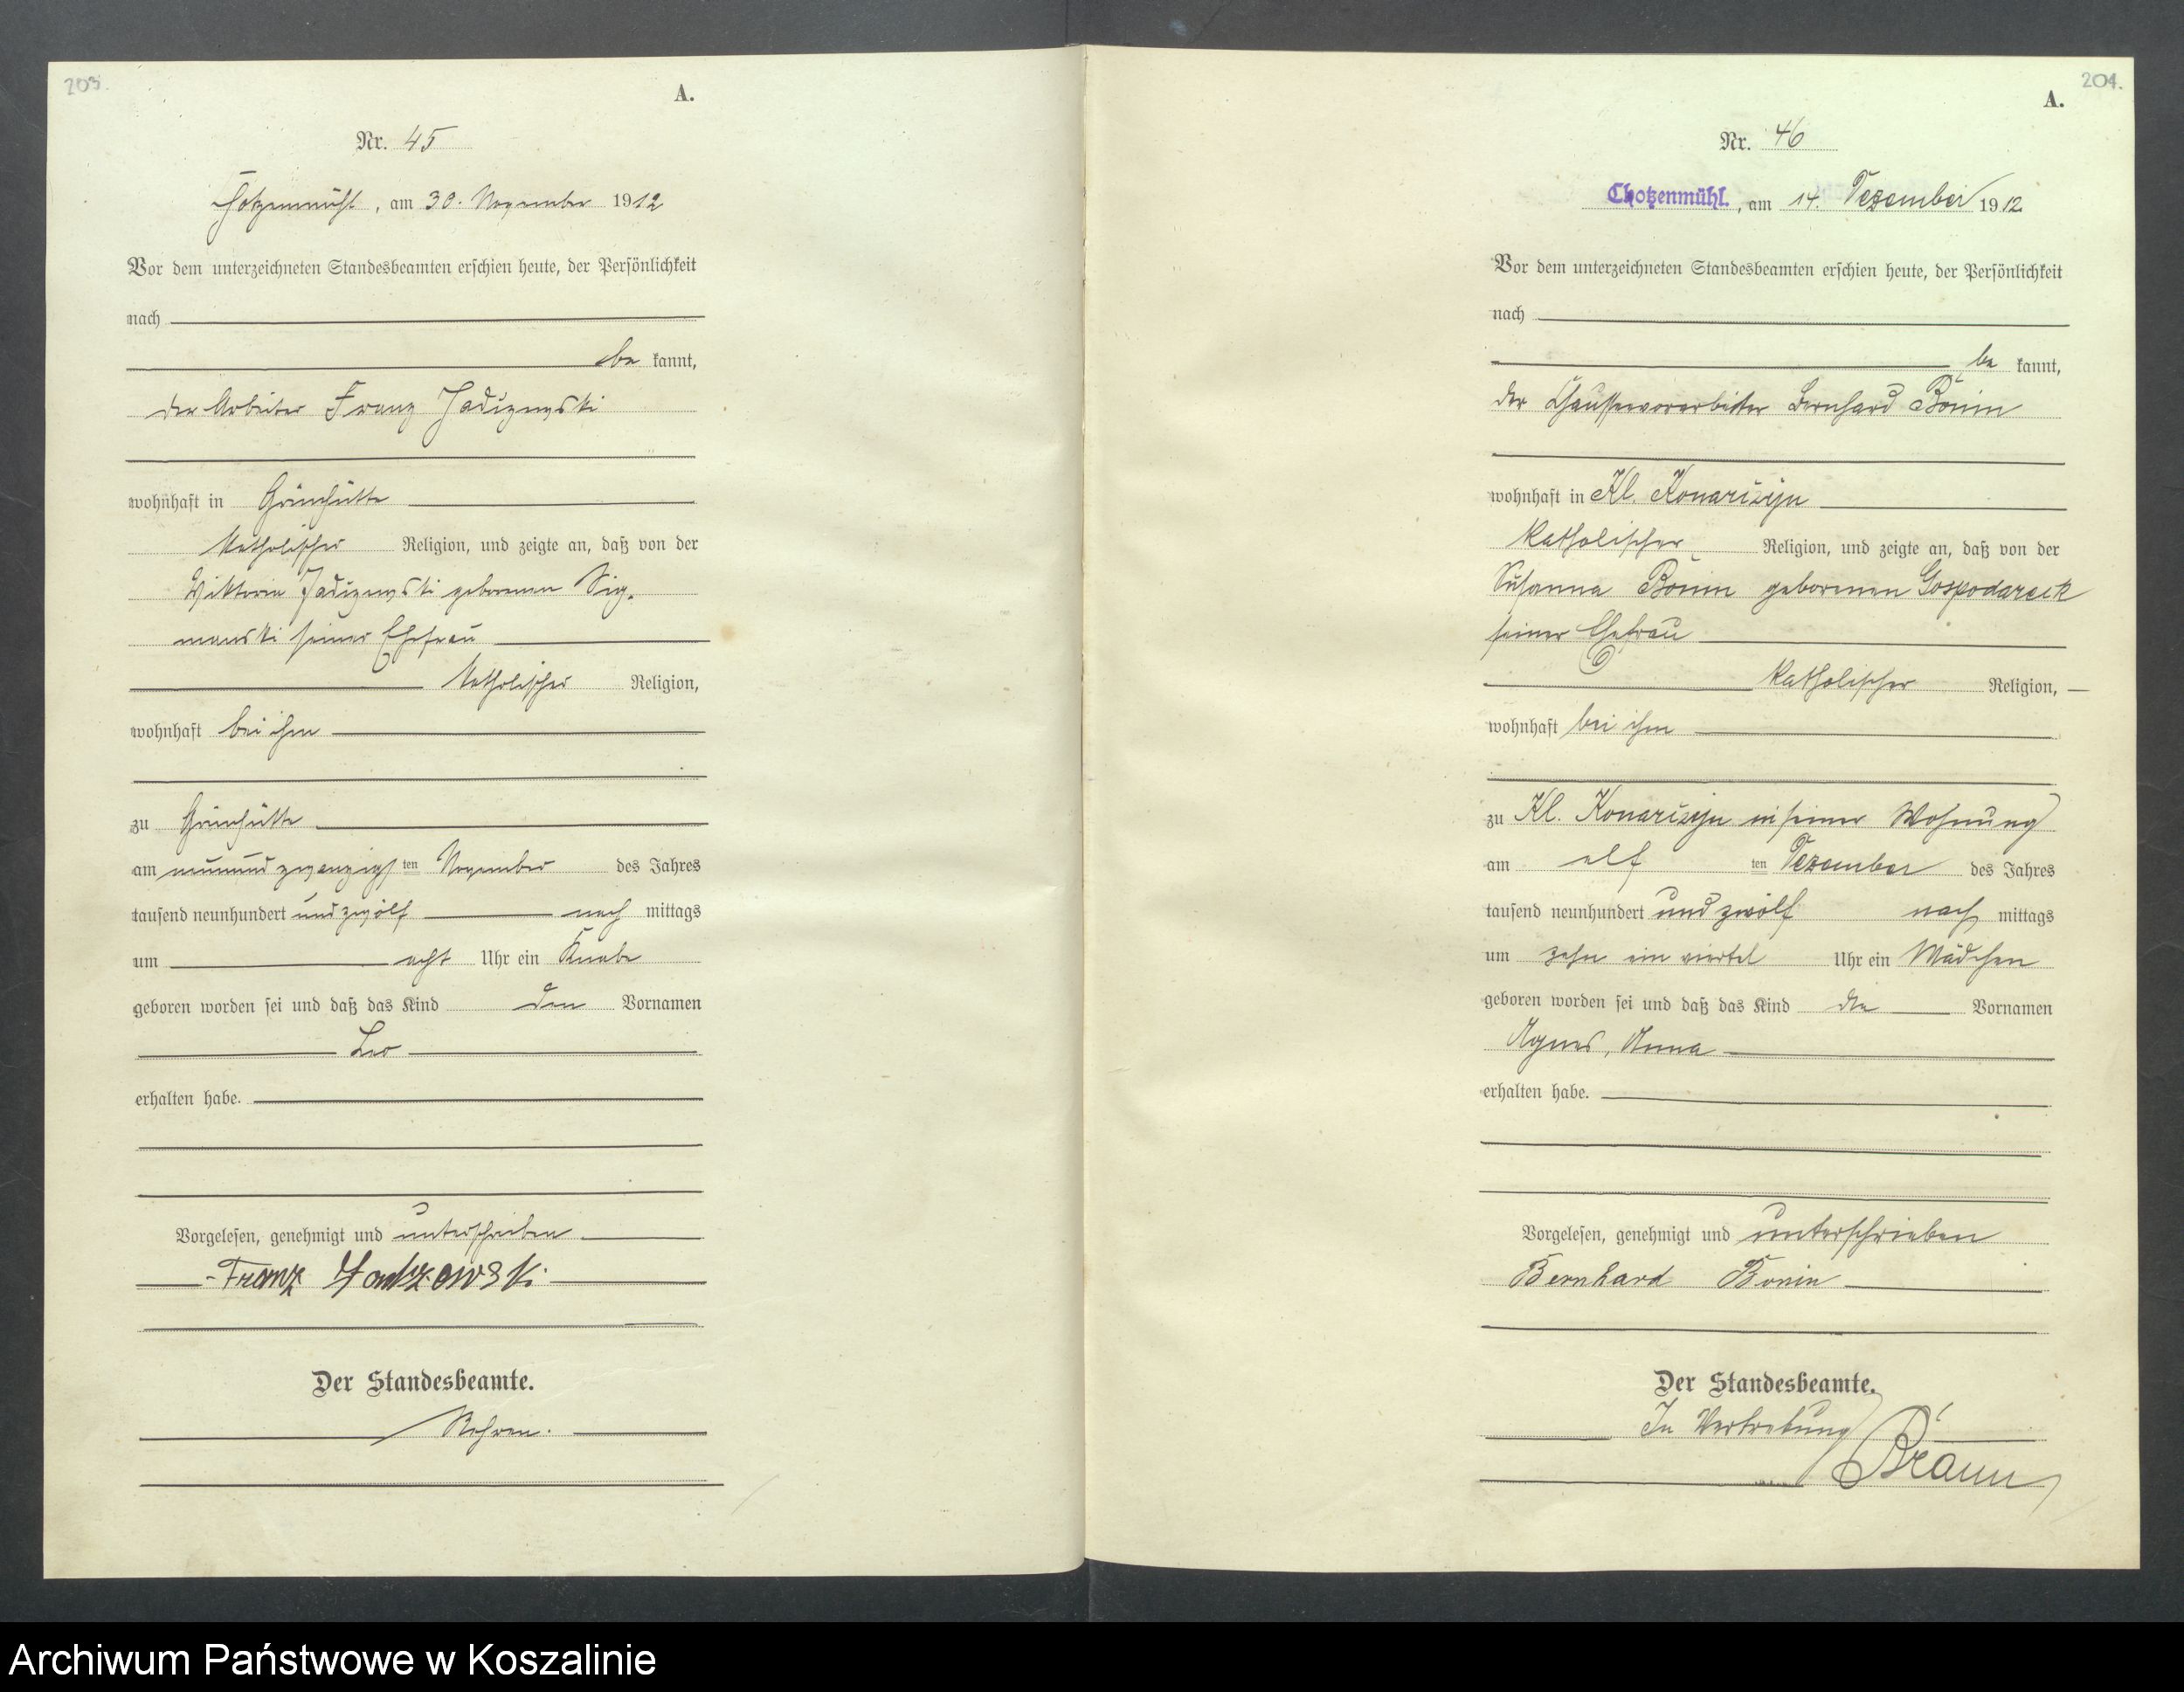 203.
A.
Nr. 45
Chotzenmühl, am 30. November 1912
Vor dem unterzeichneten Standesbeamten erschien heute, der Persönlichkeit
nach
be kannt,
der Arbeiter Franz
wohnhaft in Grünhütte
katholischer Religion, und zeigte an, daß von der
Viktoria geborenen Sig-
manski seiner Ehefrau
katholischer Religion,
wohnhaft bei ihm
zu Grünhütte
am neunundzwanzigsten November des Jahres
tausend neunhundert und zwölf nach mittags
um acht Uhr ein Knabe
geboren worden sei und daß das Kind den Vornamen
Leo
erhalten habe.
Vorgelesen, genehmigt und unterschrieben
Franz
Der Standesbeamte.
204.
A.
Nr. 46
Chotzenmühl, am 14. Dezember 1912
Vor dem unterzeichneten Standesbeamten erschien heute, der Persönlichkeit
nach
be kannt,
der Chausseevorarbeiter Bernhard Bonin
wohnhaft in Kl. Konarczyn
katholischer Religion, und zeigte an, daß von der
Susanna Bonin geborenen Gospodareck
seiner Ehefrau
katholischer Religion,
wohnhaft bei ihm
zu Kl. Konarczyn in seiner Wohnung
am elf ten Dezember des Jahres
tausend neunhundert und zwölf nach mittags
um zehn ein viertel Uhr ein Mädchen
geboren worden sei und daß das Kind die Vornamen
Agnes, Anna
erhalten habe.
Vorgelesen, genehmigt und unterschrieben
Bernhard Bonin
Der Standesbeamte.
In Vertretung
Braun
Archiwum Państwowe w Koszalinie